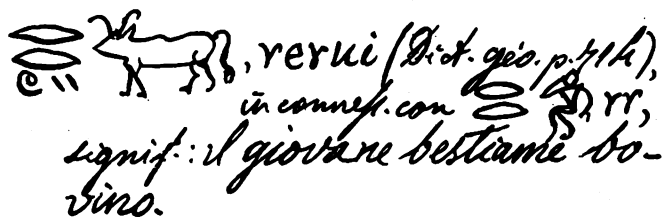 𓂋𓂋𓏲𓏭𓃒, rerui (Dict. géo. p.
in conness. con 𓂋𓂋 rr,
signif.: il giovane bestiame bo-
vino.